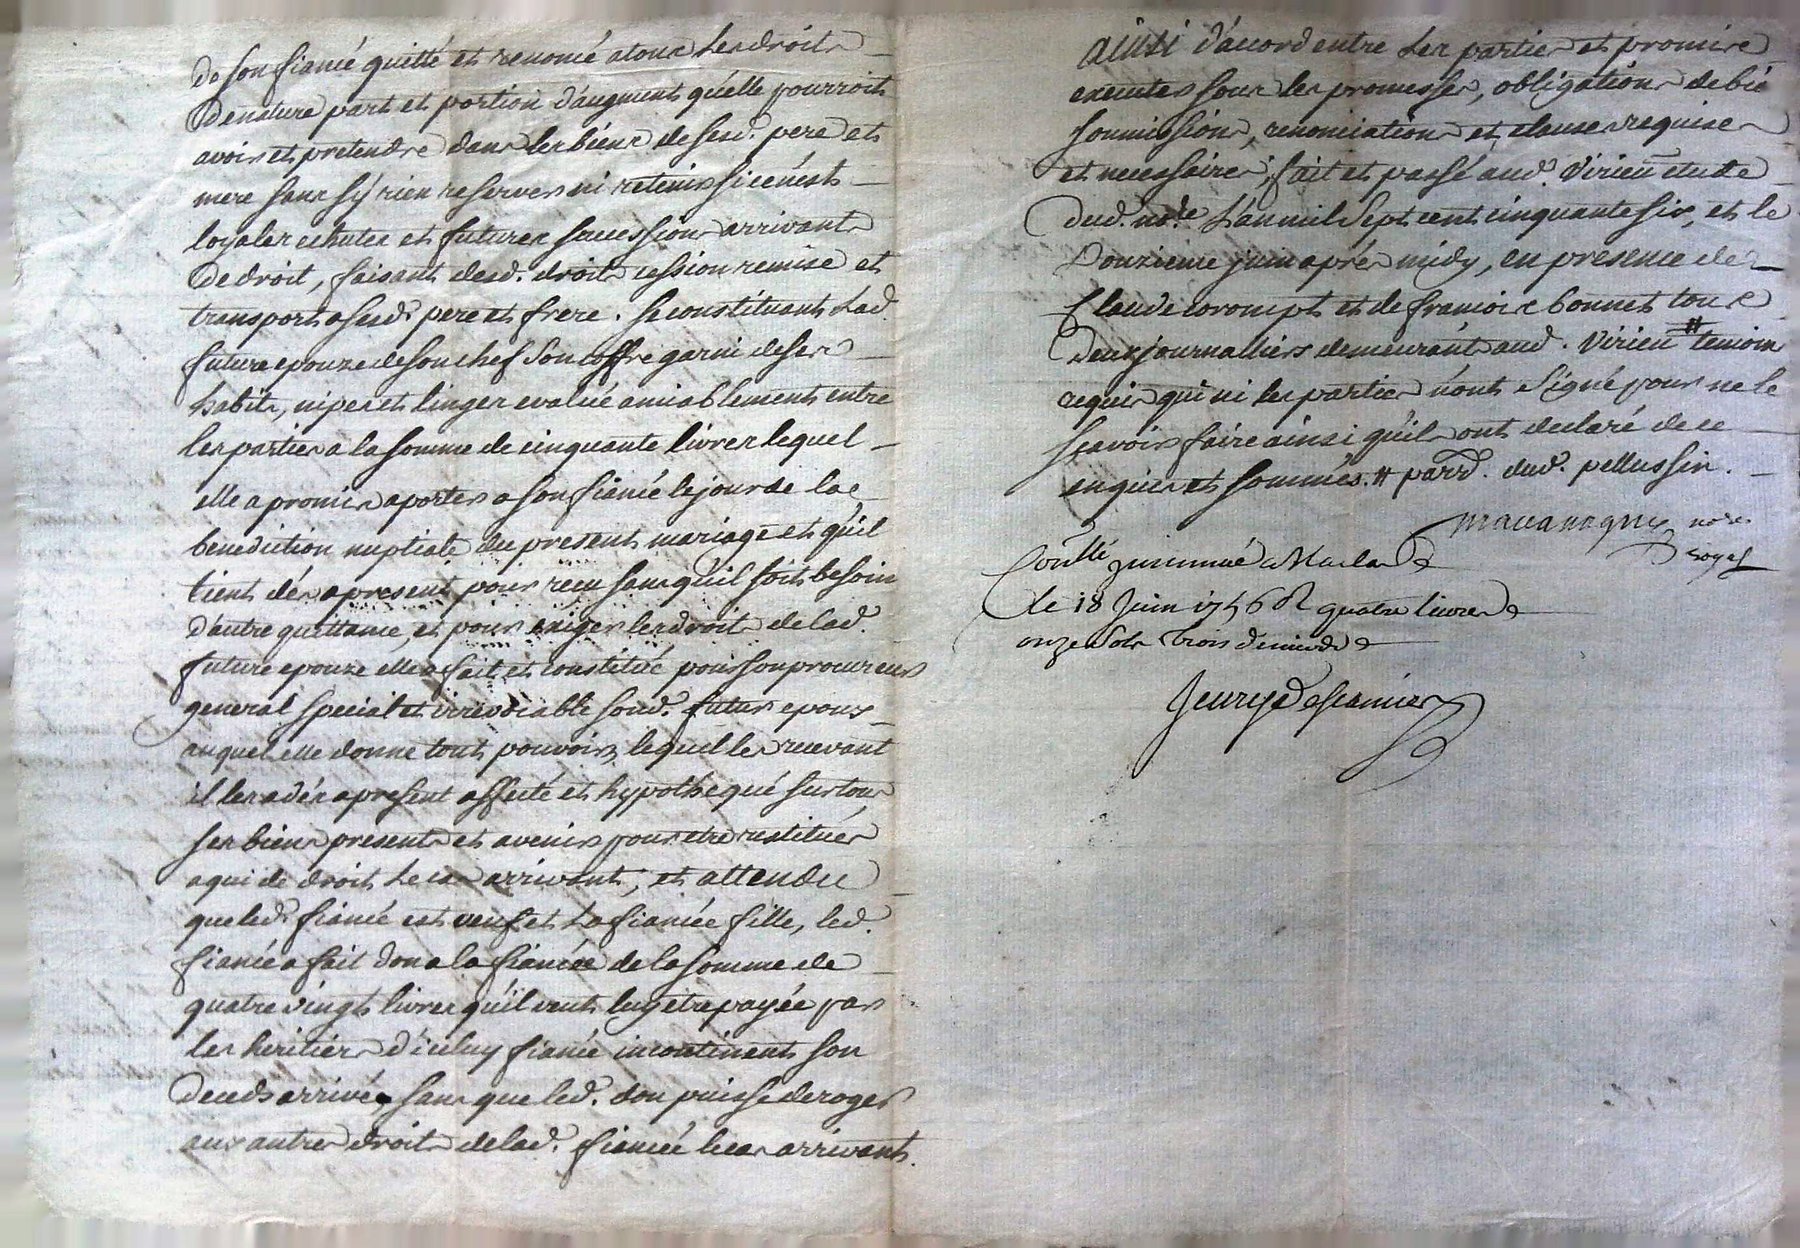 de son fiancé quitté et renoncé a tous les droits
de nature part et portion d'augment qu'elle pourroit
avoir et pretendre dans les biens de sesd. pere et
mere sans s'y rien reserver ni retenir si ce n'est
loyales echutes et futures succession arrivant
de droit, faisant desd. droits cession remise et
transport a sesd. pere et frere. se constituant lad.
future epouze de son chef son coffre garni de ses
habits, nipes et linges evalué amiablement entre
les parties a la somme de cinquante livres lequel
elle a promis aporter a son fiancé le jour de la
benediction nuptiale du present mariage et qu'il
tient dés apresent pour receu sans qu'il soit besoin
d'autre quittance, et pour exiger les droits de lad.
future epouze elle a fait et constitué pour son procureur
general special et irrevocable sond. futur epoux
auquel elle donne tout pouvoir, lequel les recevant
il les a dés apresent affecté et hypothequé sur tous
ses biens presents et avenir pour etre restitués
a qui de droit le cas arrivant, et attendu
que led. fiancé est veuf et la fiancée fille, led.
fiancé a fait don a la fiancée de la somme de
quatre vingt livres qu'il veut luy etre payée par
les heritiers d'iceluy fiancé incontinent son
deceds arrivé, sans que led. don puisse deroger
aux autres droits de lad. fiancée le cas arrivant.
ainsi d'accord entre les parties et promis
executer sous les promesses, obligations de bie
soumissions, renonciations et clauses requises
et necessaires, fait et passé aud. Virieu etude
dud. nore. L'an mil sept cent cinquante six, et le
Douzieme juin aprés midy, en presence de
Claude corompt et de francois bonnet tous
deux journalliers demeurant aud. Virieu # temoins
requis qui ni les parties n'ont signé pour ne le
scavoir faire ainsi qu'ils ont declaré de ce
enquis et sommés. # parr. dud. pellussin.
nore.
royal
Conllé
le 18 Juin 1756 R quatre livres
onze sols trois deniers